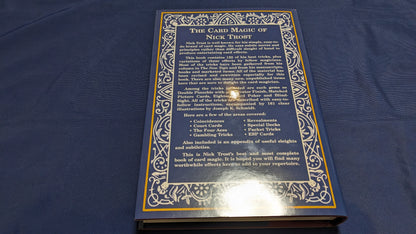 THE CARD MAGIC OF
NICK TROST
Nick Trost is well known for his simple, easy-to-
do brand of card magic. He uses subtle moves and
principles rather than difficult sleight of hand to
produce entertaining card effects.
This book contains 125 of his best tricks, plus
variations of these effects by fellow magicians.
Most of the tricks have been gathered from his
column in The New Tops and from his numerous
books and marketed items. All of the material has
been revised and rewritten especially for this
book. There are also many new, unpublished items
here that are sure to delight the card magician.
Among the tricks included are such gems as
Double Pinochle with Finale, Matched
Picture Cards, Poker and Blind-
sight. All of the tricks are described with easy-to-
follow instructions, accompanied by 161 clear
illustrations by Joseph K. Schmidt.
Here are a few of the areas covered:
• Coincidences • Revealments
• Court Cards • Special Decks
• The Four Aces • Packet Tricks
• Gambling Tricks • ESP Cards
Also included is an appendix of useful sleights
and subtleties.
This is Nick Trost's best and most complete
book of card magic. It is hoped you will find many
worthwhile effects herein to add to your repertoire.